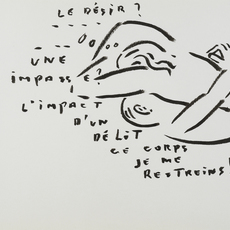 LE DÉSIR ?
UNE
IMPASSE ?
L'IMPACT
D'UN
DÉLIT
CE CORPS
JE ME
RESTREINS